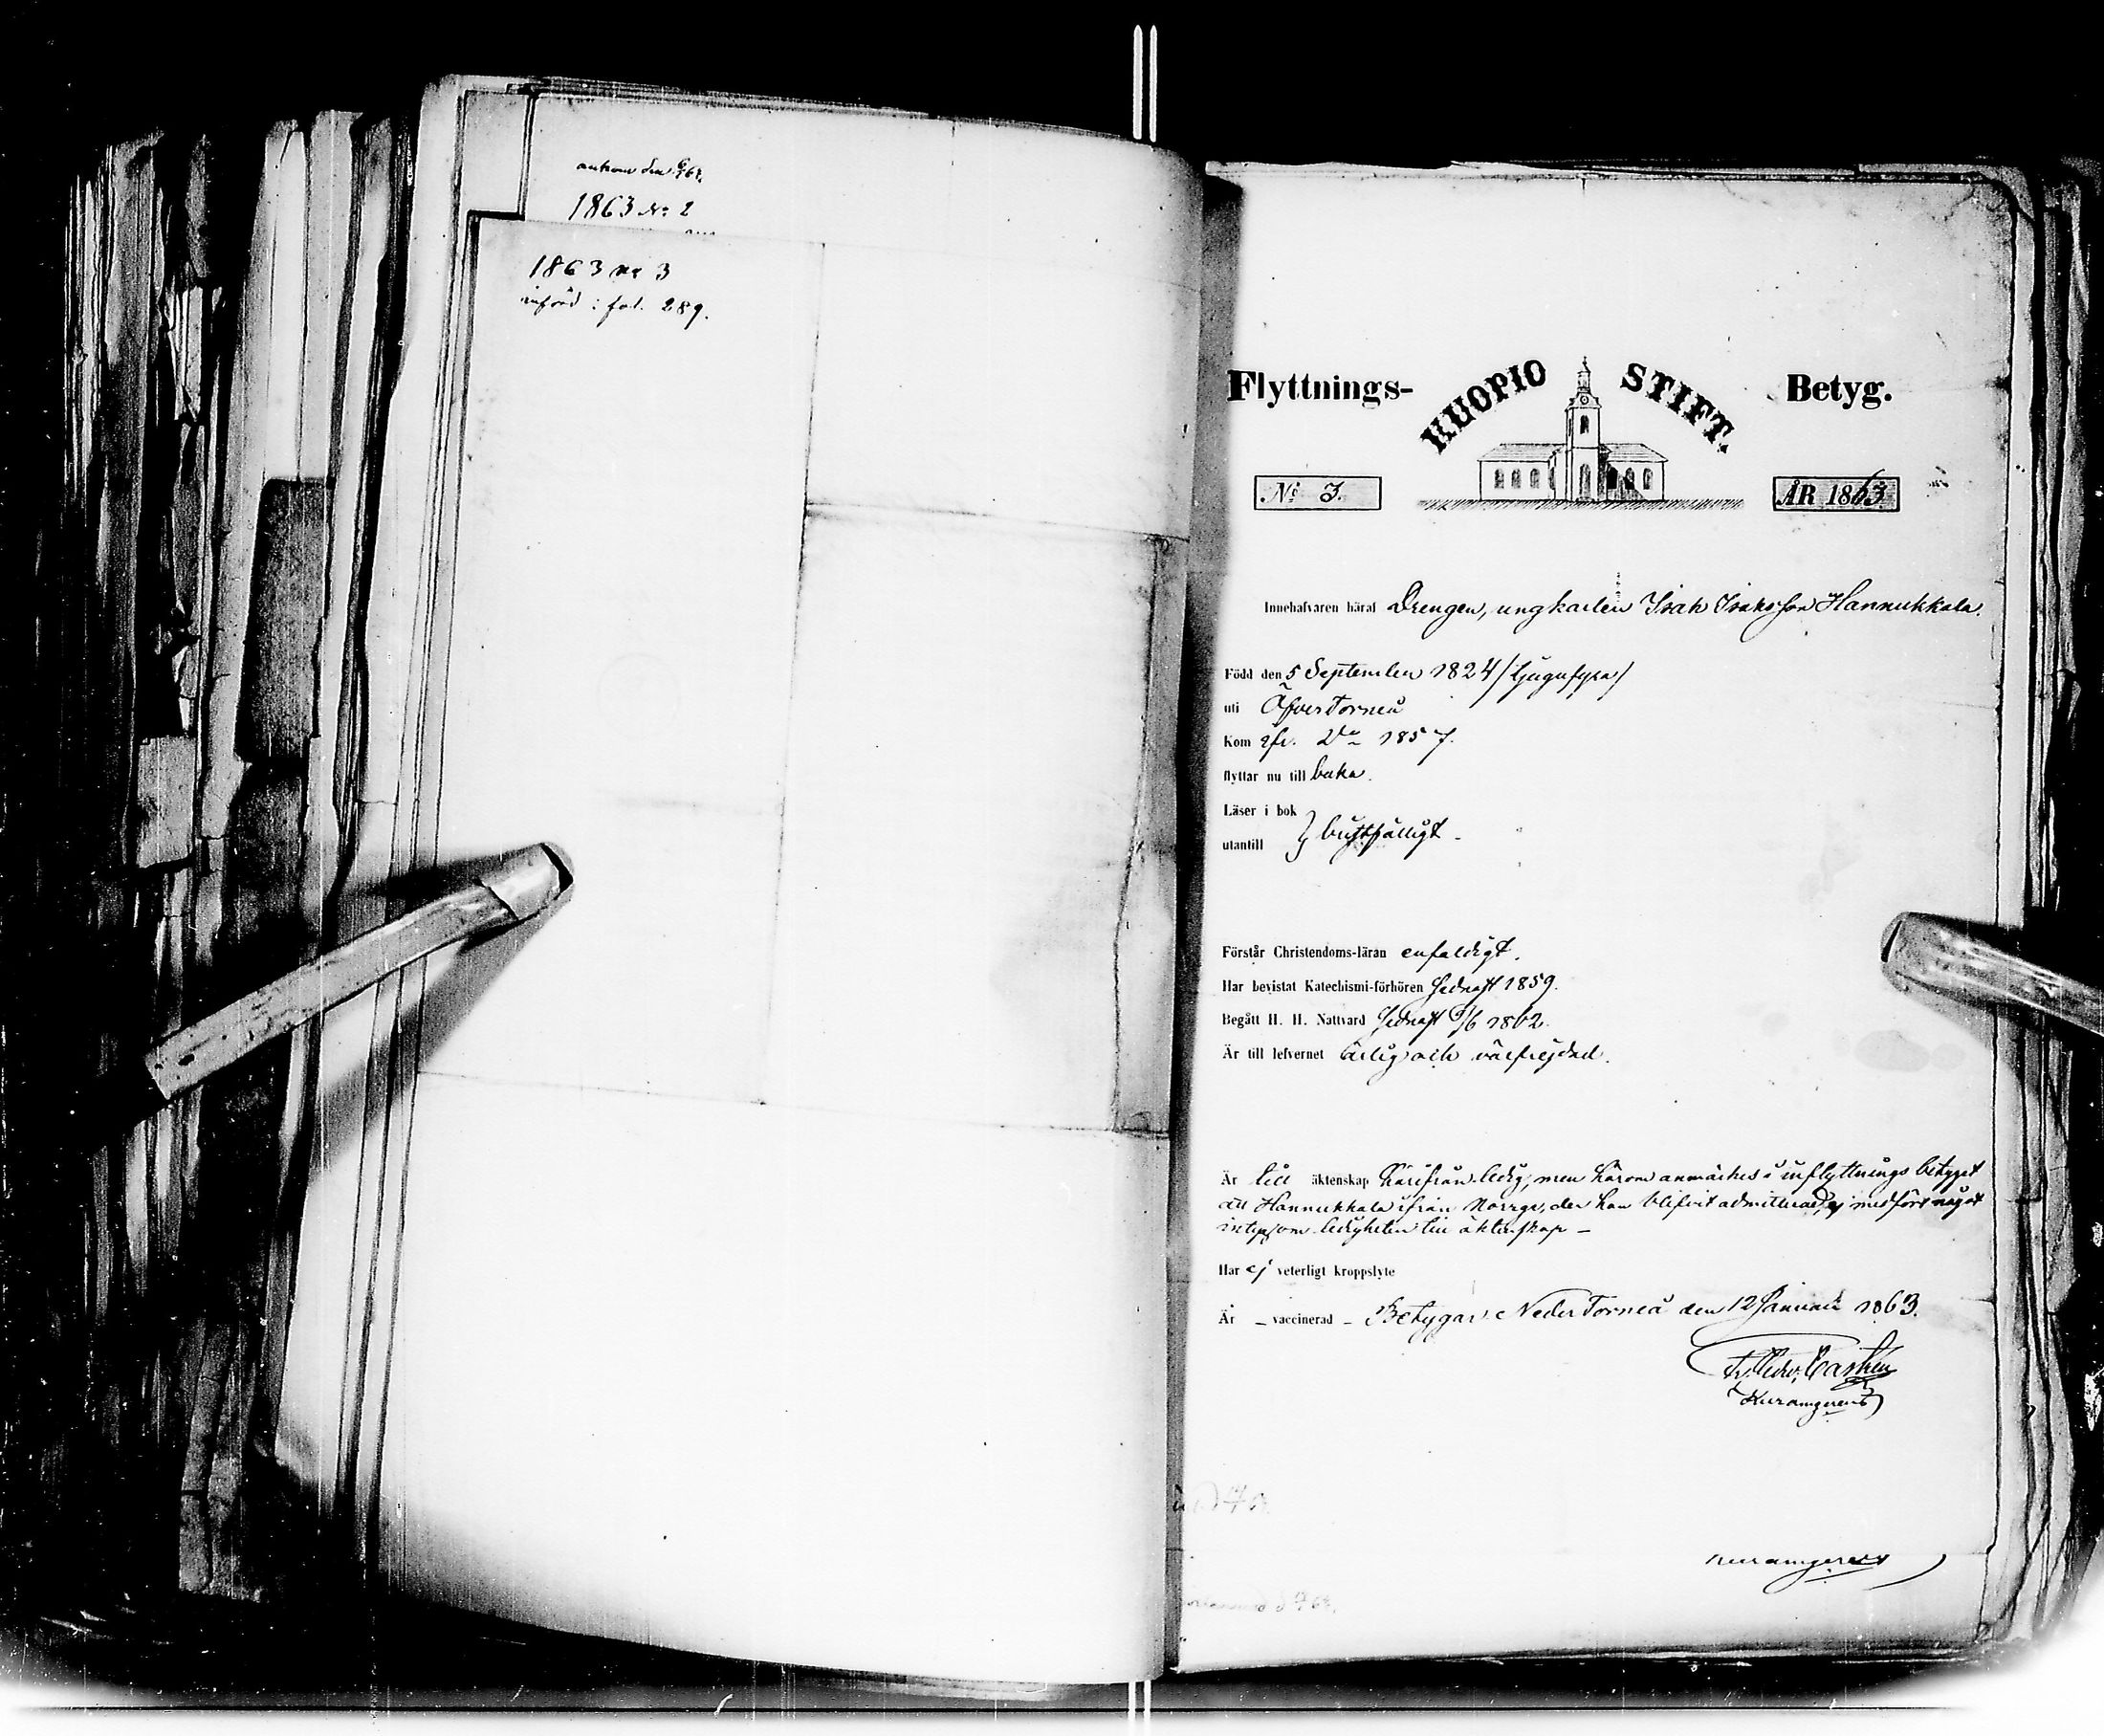 1863 No 2
1863 no 3
införd i fol. 289.
Flyttnings- KUOPIO STIFT. Betyg.
No 3. ÅR 1863.
Innehafvaren häraf Drengen, ungkarlen Isak Isaksson Hannukkala.
Född den 5 September 1824 /tjugufyra/
uti ÖfverTorneå
Kom 1857.
flyttar nu till baka.
Läser i bok
utantill
Förstår Christendoms-läran enfaldigt.
Har bevistat Katechismi-förhören sednast 1859.
Begått H. H. Nattvard sednast 1862.
Är till lefvernet ärlig och välfrejdad.
Är till äktenskap härifrån ledig, men härom anmärkes i inflyttnings betyget
att Hannukkala ifrån Norrge, der han blifvit admitterad, ej medfört något
intyg om ledigheten till äktenskap –
Har ej veterligt kroppslyte
Är – vaccinerad – Betygar NederTorneå den 12 Januari 1863.
Castrén
Kuramgerens
kuramgerens